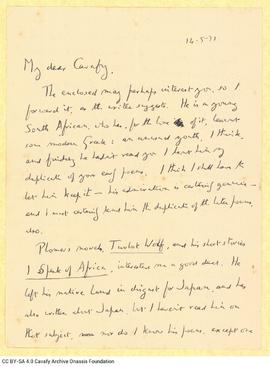 14-5-31
My dear Cavafy,
The enclosed may perhaps interest you, so I
forward it, as the writer suggests. He is a young
South African, who has, for the love of it, learnt
some modern Greek: an unusual youth, I think,
and finding he hadn't read you I lent him my
duplicate of your early poems. I think I shall have to
let him keep it — his admiration is certainly genuine —
and I must certainly lend him the duplicate of the later poems,
also.
Plomer's novels, Turbot Wolfe, and his short stories
I Speak of Africa, interested me a good deal. He
left his native land in disgust for Japan, and has
also written about Japan, but I haven't read him on
that subject, nor do I know his poems, except one
CC BY-SA 4.0 Cavafy Archive Onassis Foundation